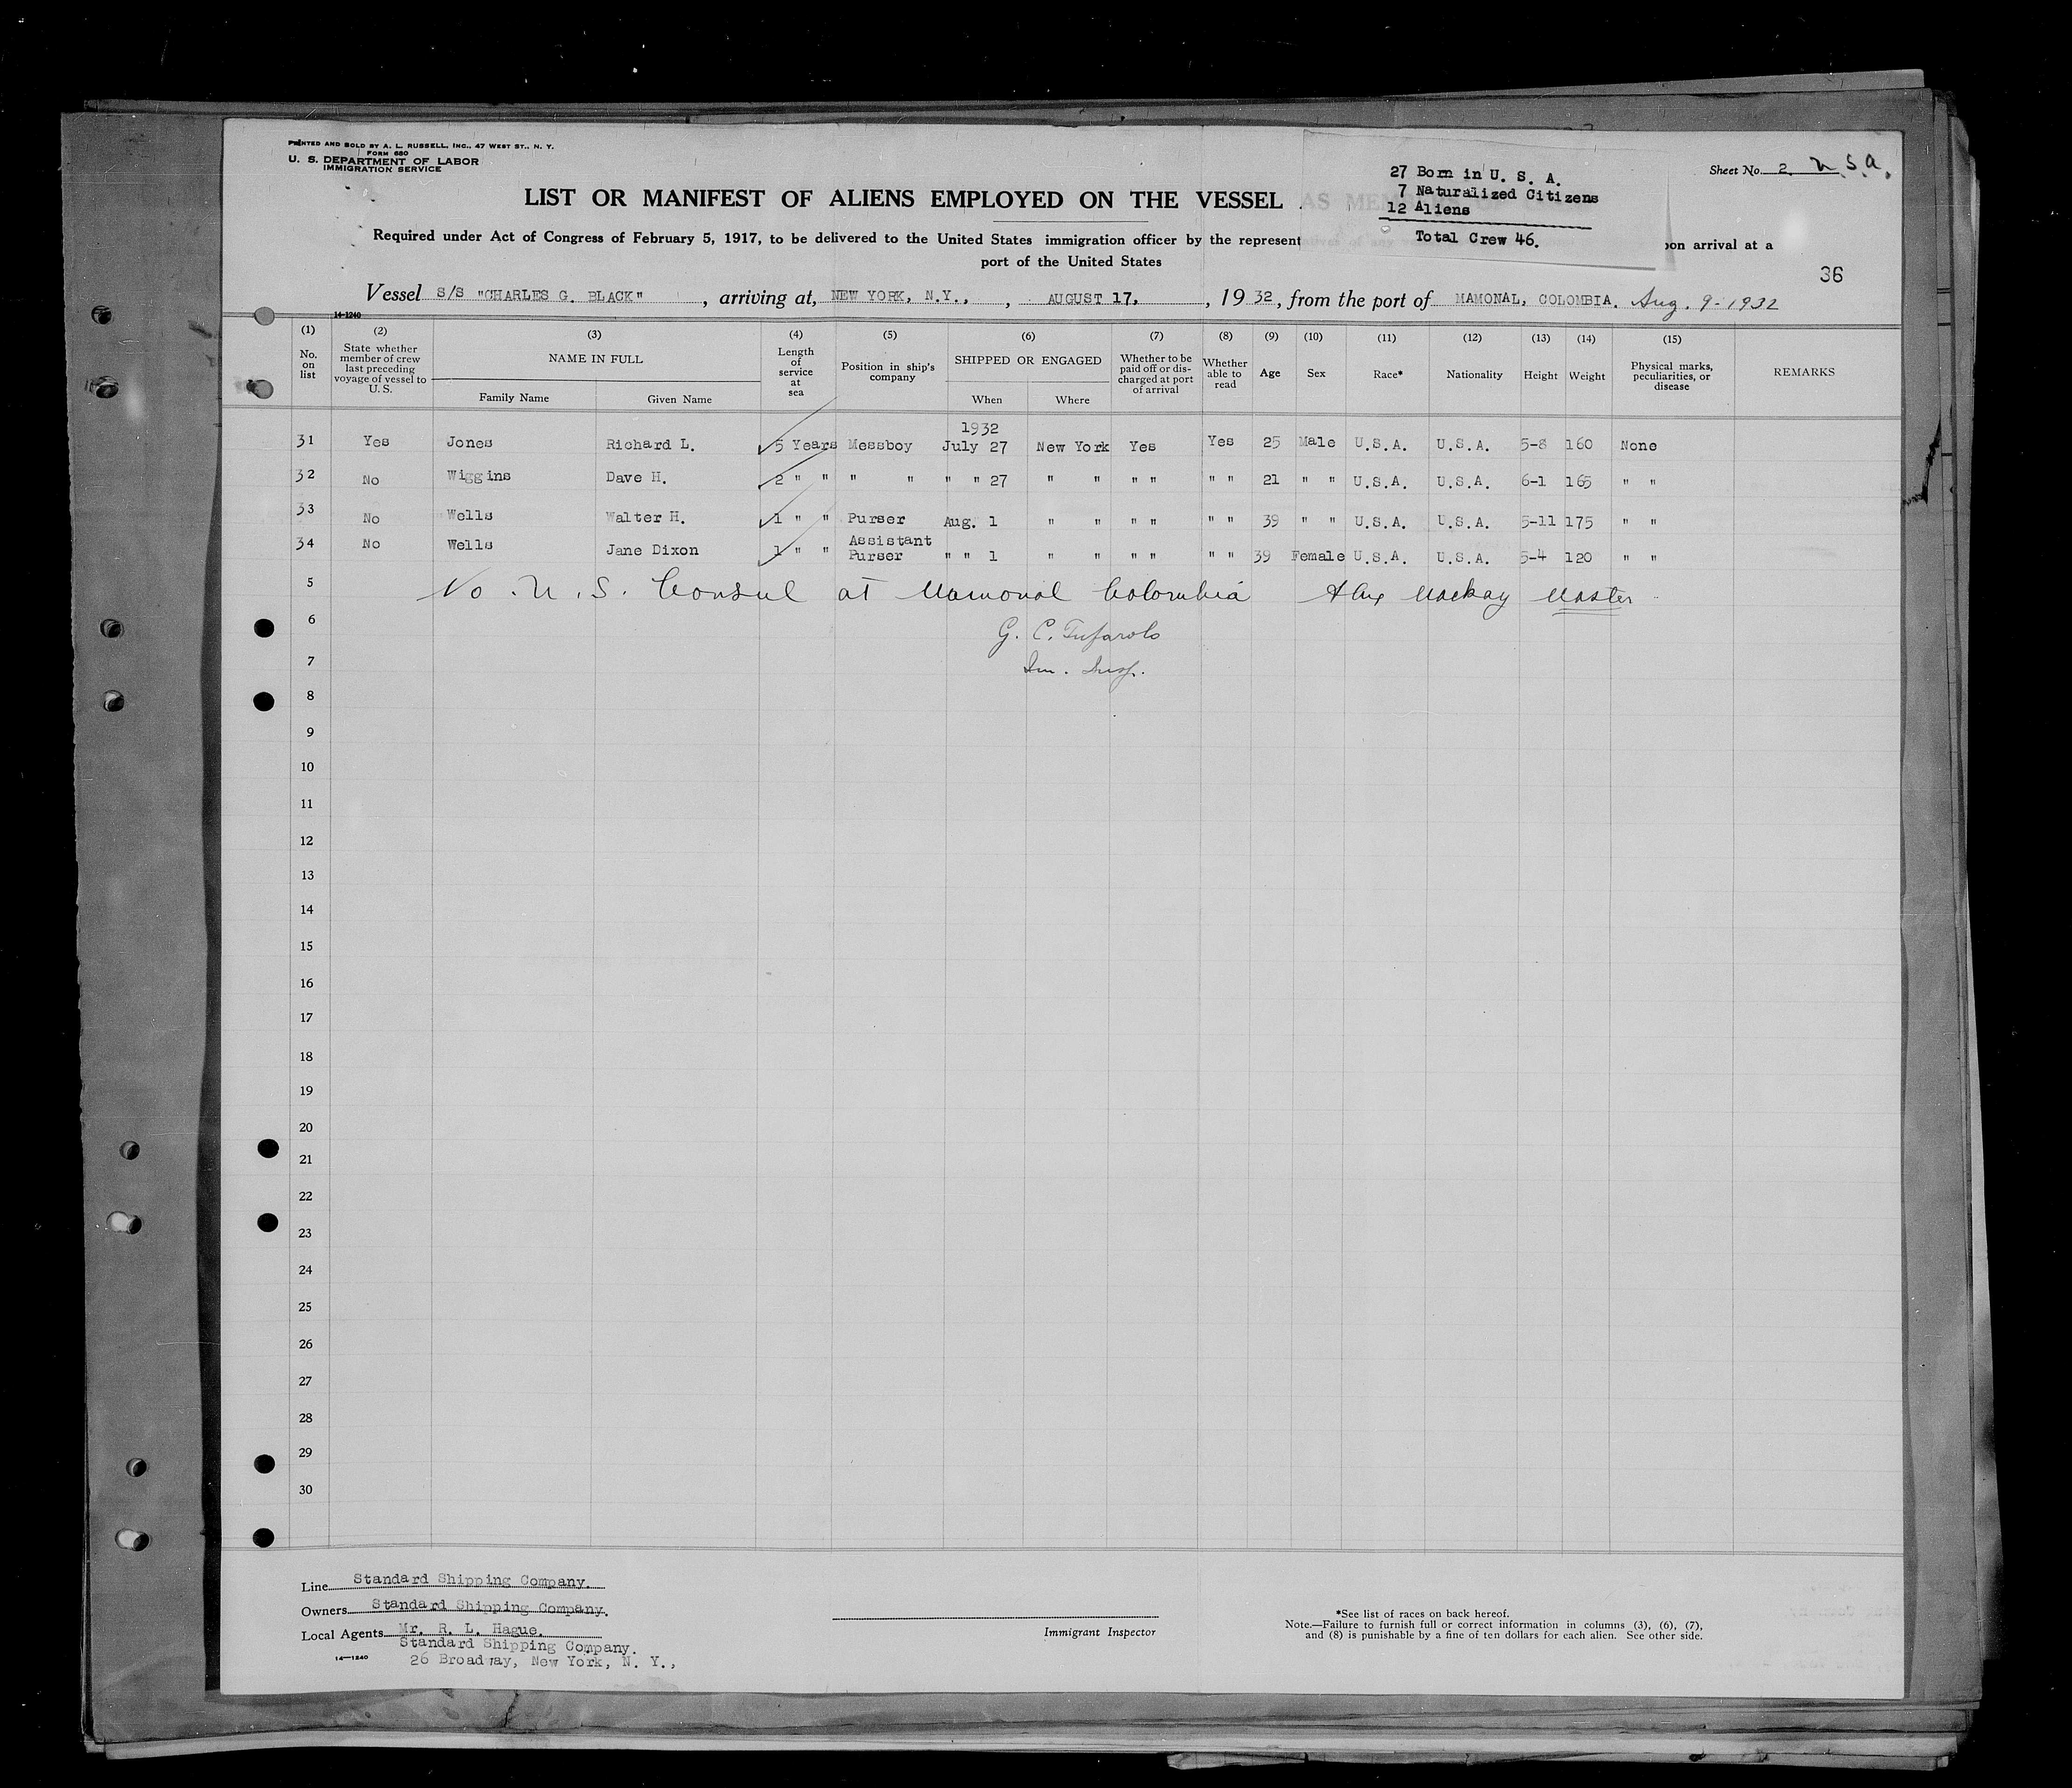 PRINTED AND SOLD BY A. L. RUSSELL, INC., 47 WEST ST., N. Y.
FORM 680
U. S. DEPARTMENT OF LABOR
IMMIGRATION SERVICE
27 Born in U. S. A.
7 Naturalized Citizens
12 Aliens
Total Crew 46.
Sheet No. 2 U.S.A.
LIST OR MANIFEST OF ALIENS EMPLOYED ON THE VESSEL AS MEM
Required under Act of Congress of February 5, 1917, to be delivered to the United States immigration officer by the represent pon arrival at a
port of the United States
36
Vessel S/S "CHARLES G. BLACK" , arriving at, NEW YORK, N.Y., , AUGUST 17, , 1932, from the port of MAMONAL, COLOMBIA. Aug. 9-1932
14-1240
(1) (2) (3) (4) (5) (6) (7) (8) (9) (10) (11) (12) (13) (14) (15)
No. on list State whether member of crew last preceding voyage of vessel to U. S. NAME IN FULL Family Name Given Name Length of service at sea Position in ship's company SHIPPED OR ENGAGED When Where Whether to be paid off or discharged at port of arrival Whether able to read Age Sex Race* Nationality Height Weight Physical marks, peculiarities, or disease REMARKS
1932
31 Yes Jones Richard L. 5 Years Messboy July 27 New York Yes Yes 25 Male U.S.A. U.S.A. 5-8 160 None
32 No Wiggins Dave H. 2 " " " " " " 27 " " " " " " 21 " " U.S.A. U.S.A. 6-1 165 " "
33 No Wells Walter H. 1 " " Purser Aug. 1 " " " " " " 39 " " U.S.A. U.S.A. 5-11 175 " "
34 No Wells Jane Dixon 1 " " Assistant Purser " " 1 " " " " " " 39 Female U.S.A. U.S.A. 5-4 120 " "
5 No. U.S. Consul at Mamonal Colombia Alex Mackay Master
6 G. C. Tufarolo
7 Im. Insp.
8
9
10
11
12
13
14
15
16
17
18
19
20
21
22
23
24
25
26
27
28
29
30
Line Standard Shipping Company.
Owners Standard Shipping Company.
Local Agents Mr. R. L. Hague.
Standard Shipping Company.
14-1240 26 Broadway, New York, N. Y.,
Immigrant Inspector
*See list of races on back hereof.
Note.—Failure to furnish full or correct information in columns (3), (6), (7),
and (8) is punishable by a fine of ten dollars for each alien. See other side.